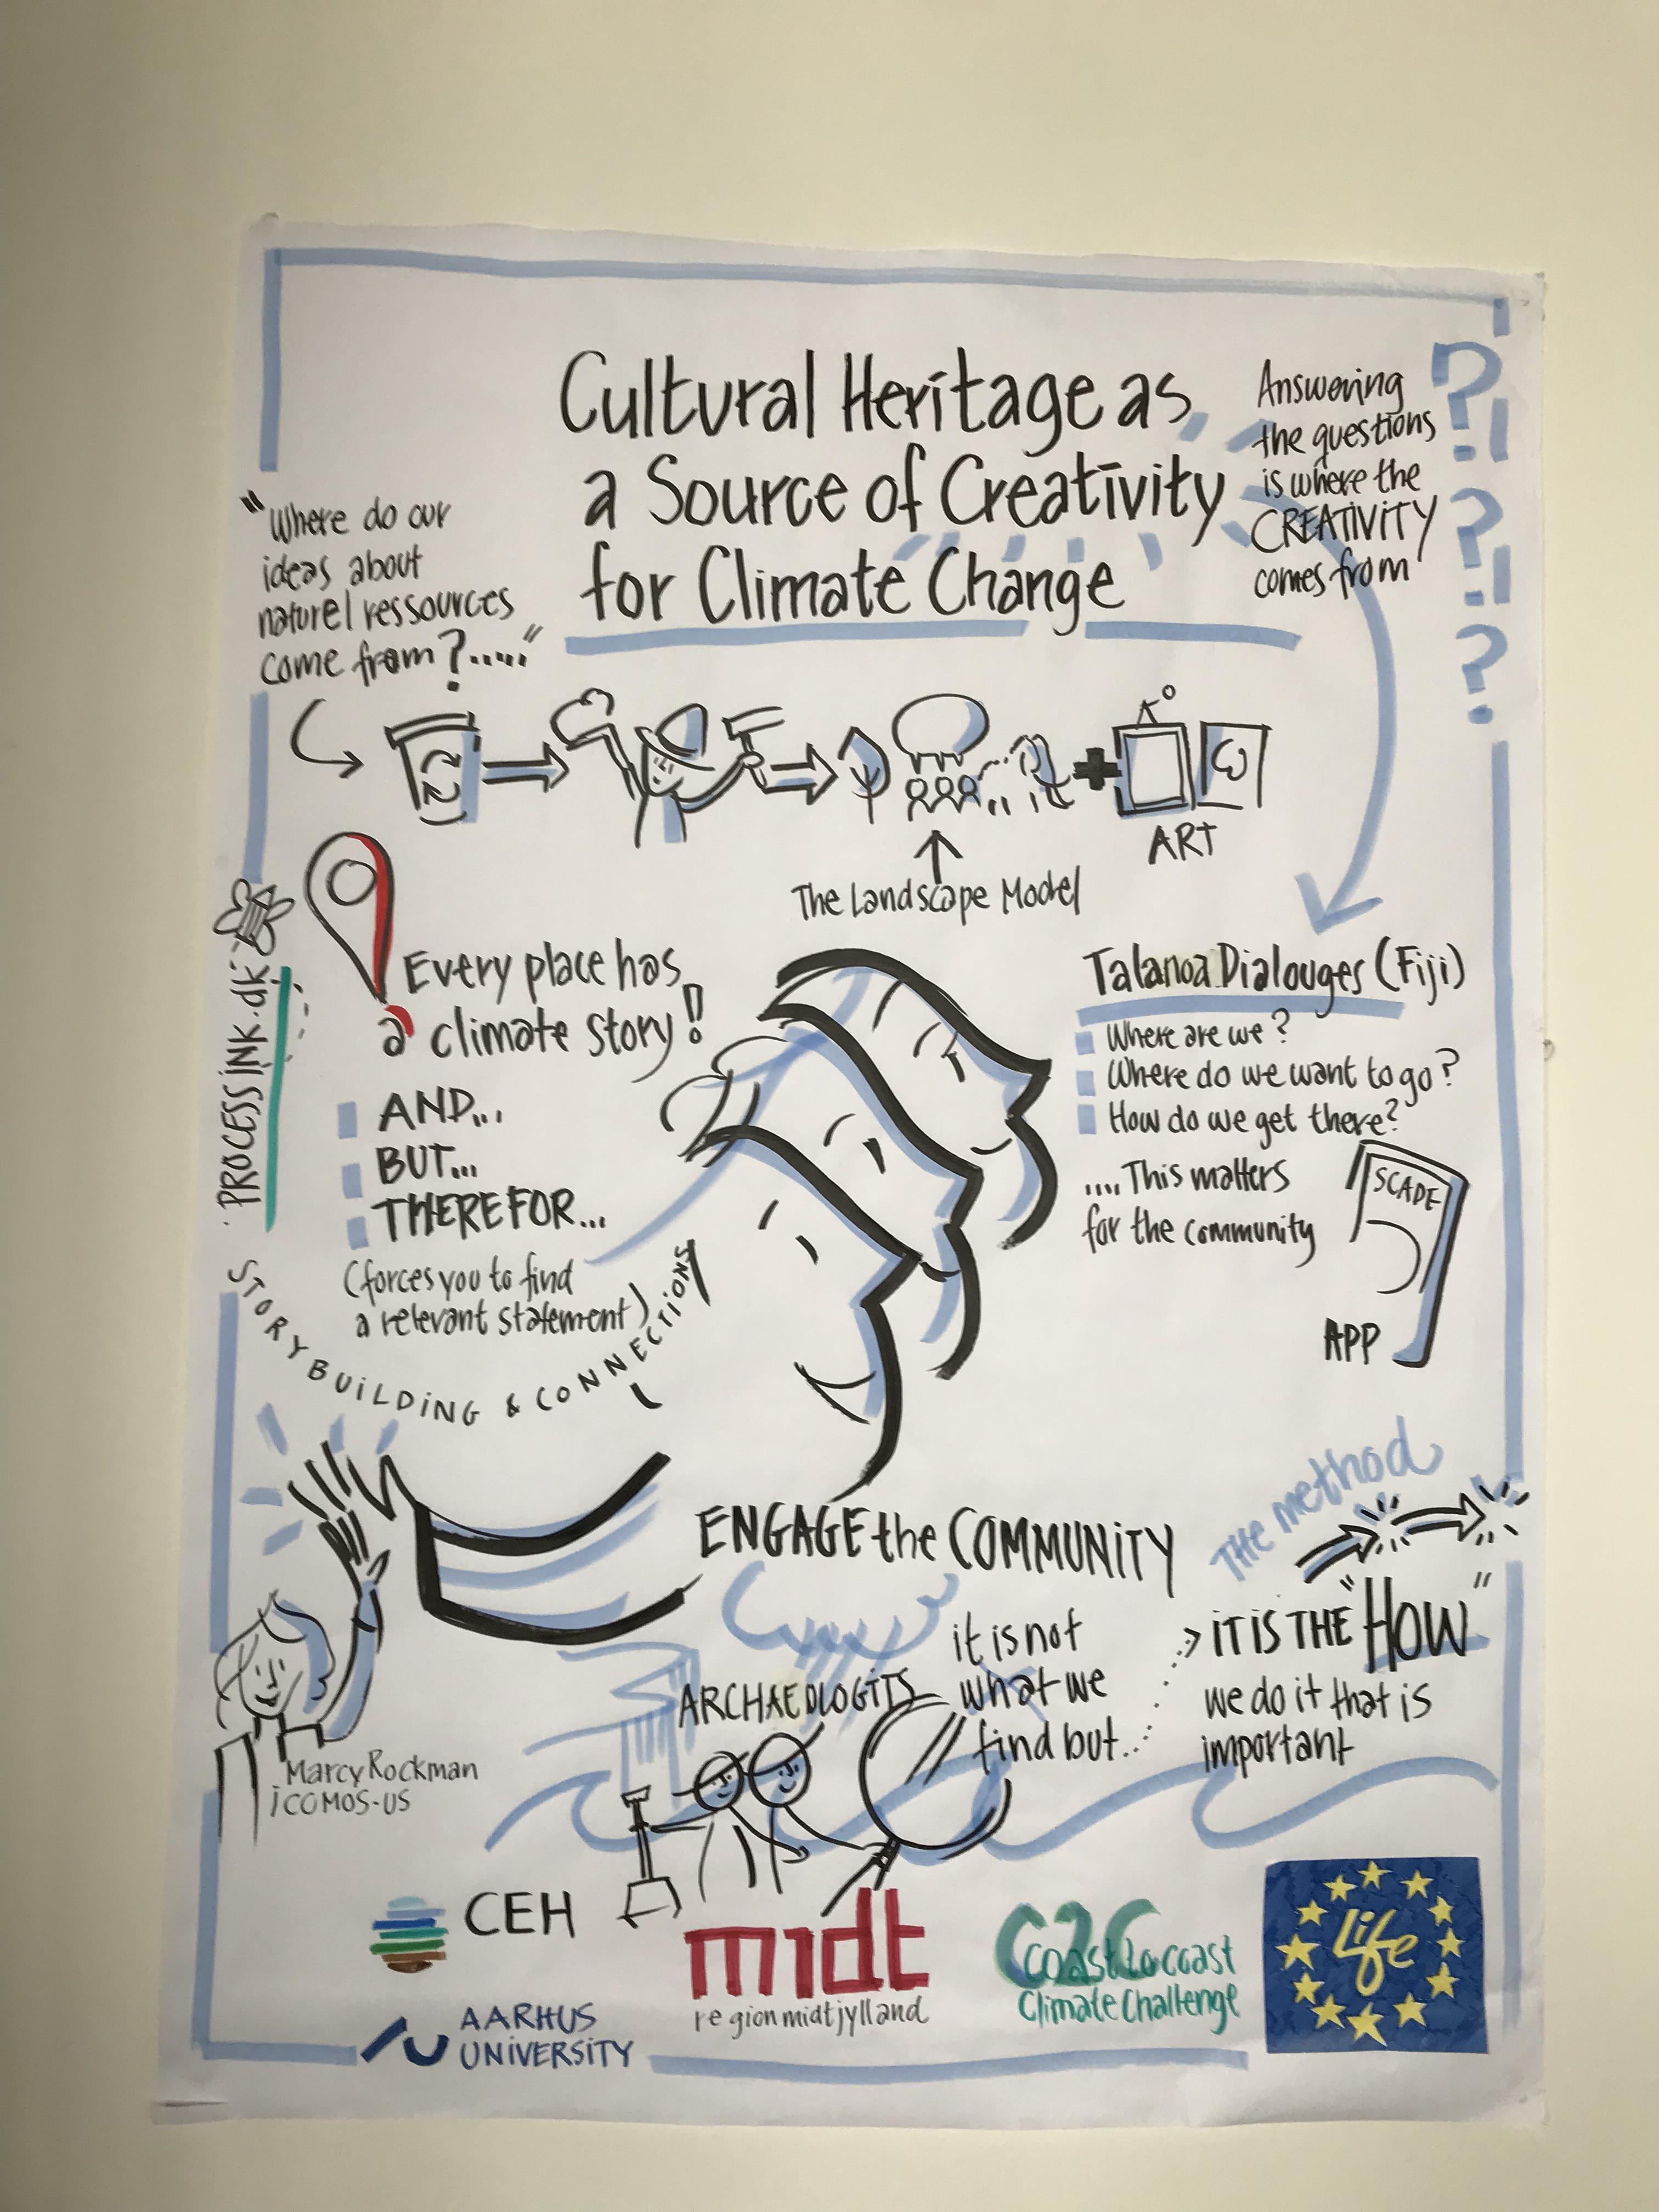 Cultural Heritage as
a Source of Creativity
for Climate Change
Answering
the questions
is where the
CREATIVITY
comes from
? ! ? ! ?
"Where do our
ideas about
naturel ressources
come from?....."
ART
The Landscape Model
Every place has
a climate story!!
AND...
BUT...
THEREFOR...
(forces you to find
a relevant statement)
STORYBUILDING & CONNECTIONS
PROCESSINK.dk
Talanoa Dialouges (Fiji)
Where are we?
Where do we want to go?
How do we get there?
.... This matters
for the community
SCAPE
APP
ENGAGE the COMMUNITY
THE method
ARCHAEOLOGITS
it is not
what we
find but...
iT IS THE "HOW"
we do it that is
important
Marcy Rockman
iCOMOS-US
CEH
AARHUS
UNIVERSITY
midt
regionmidtjylland
C2C
Coast to coast
Climate Challenge
Life